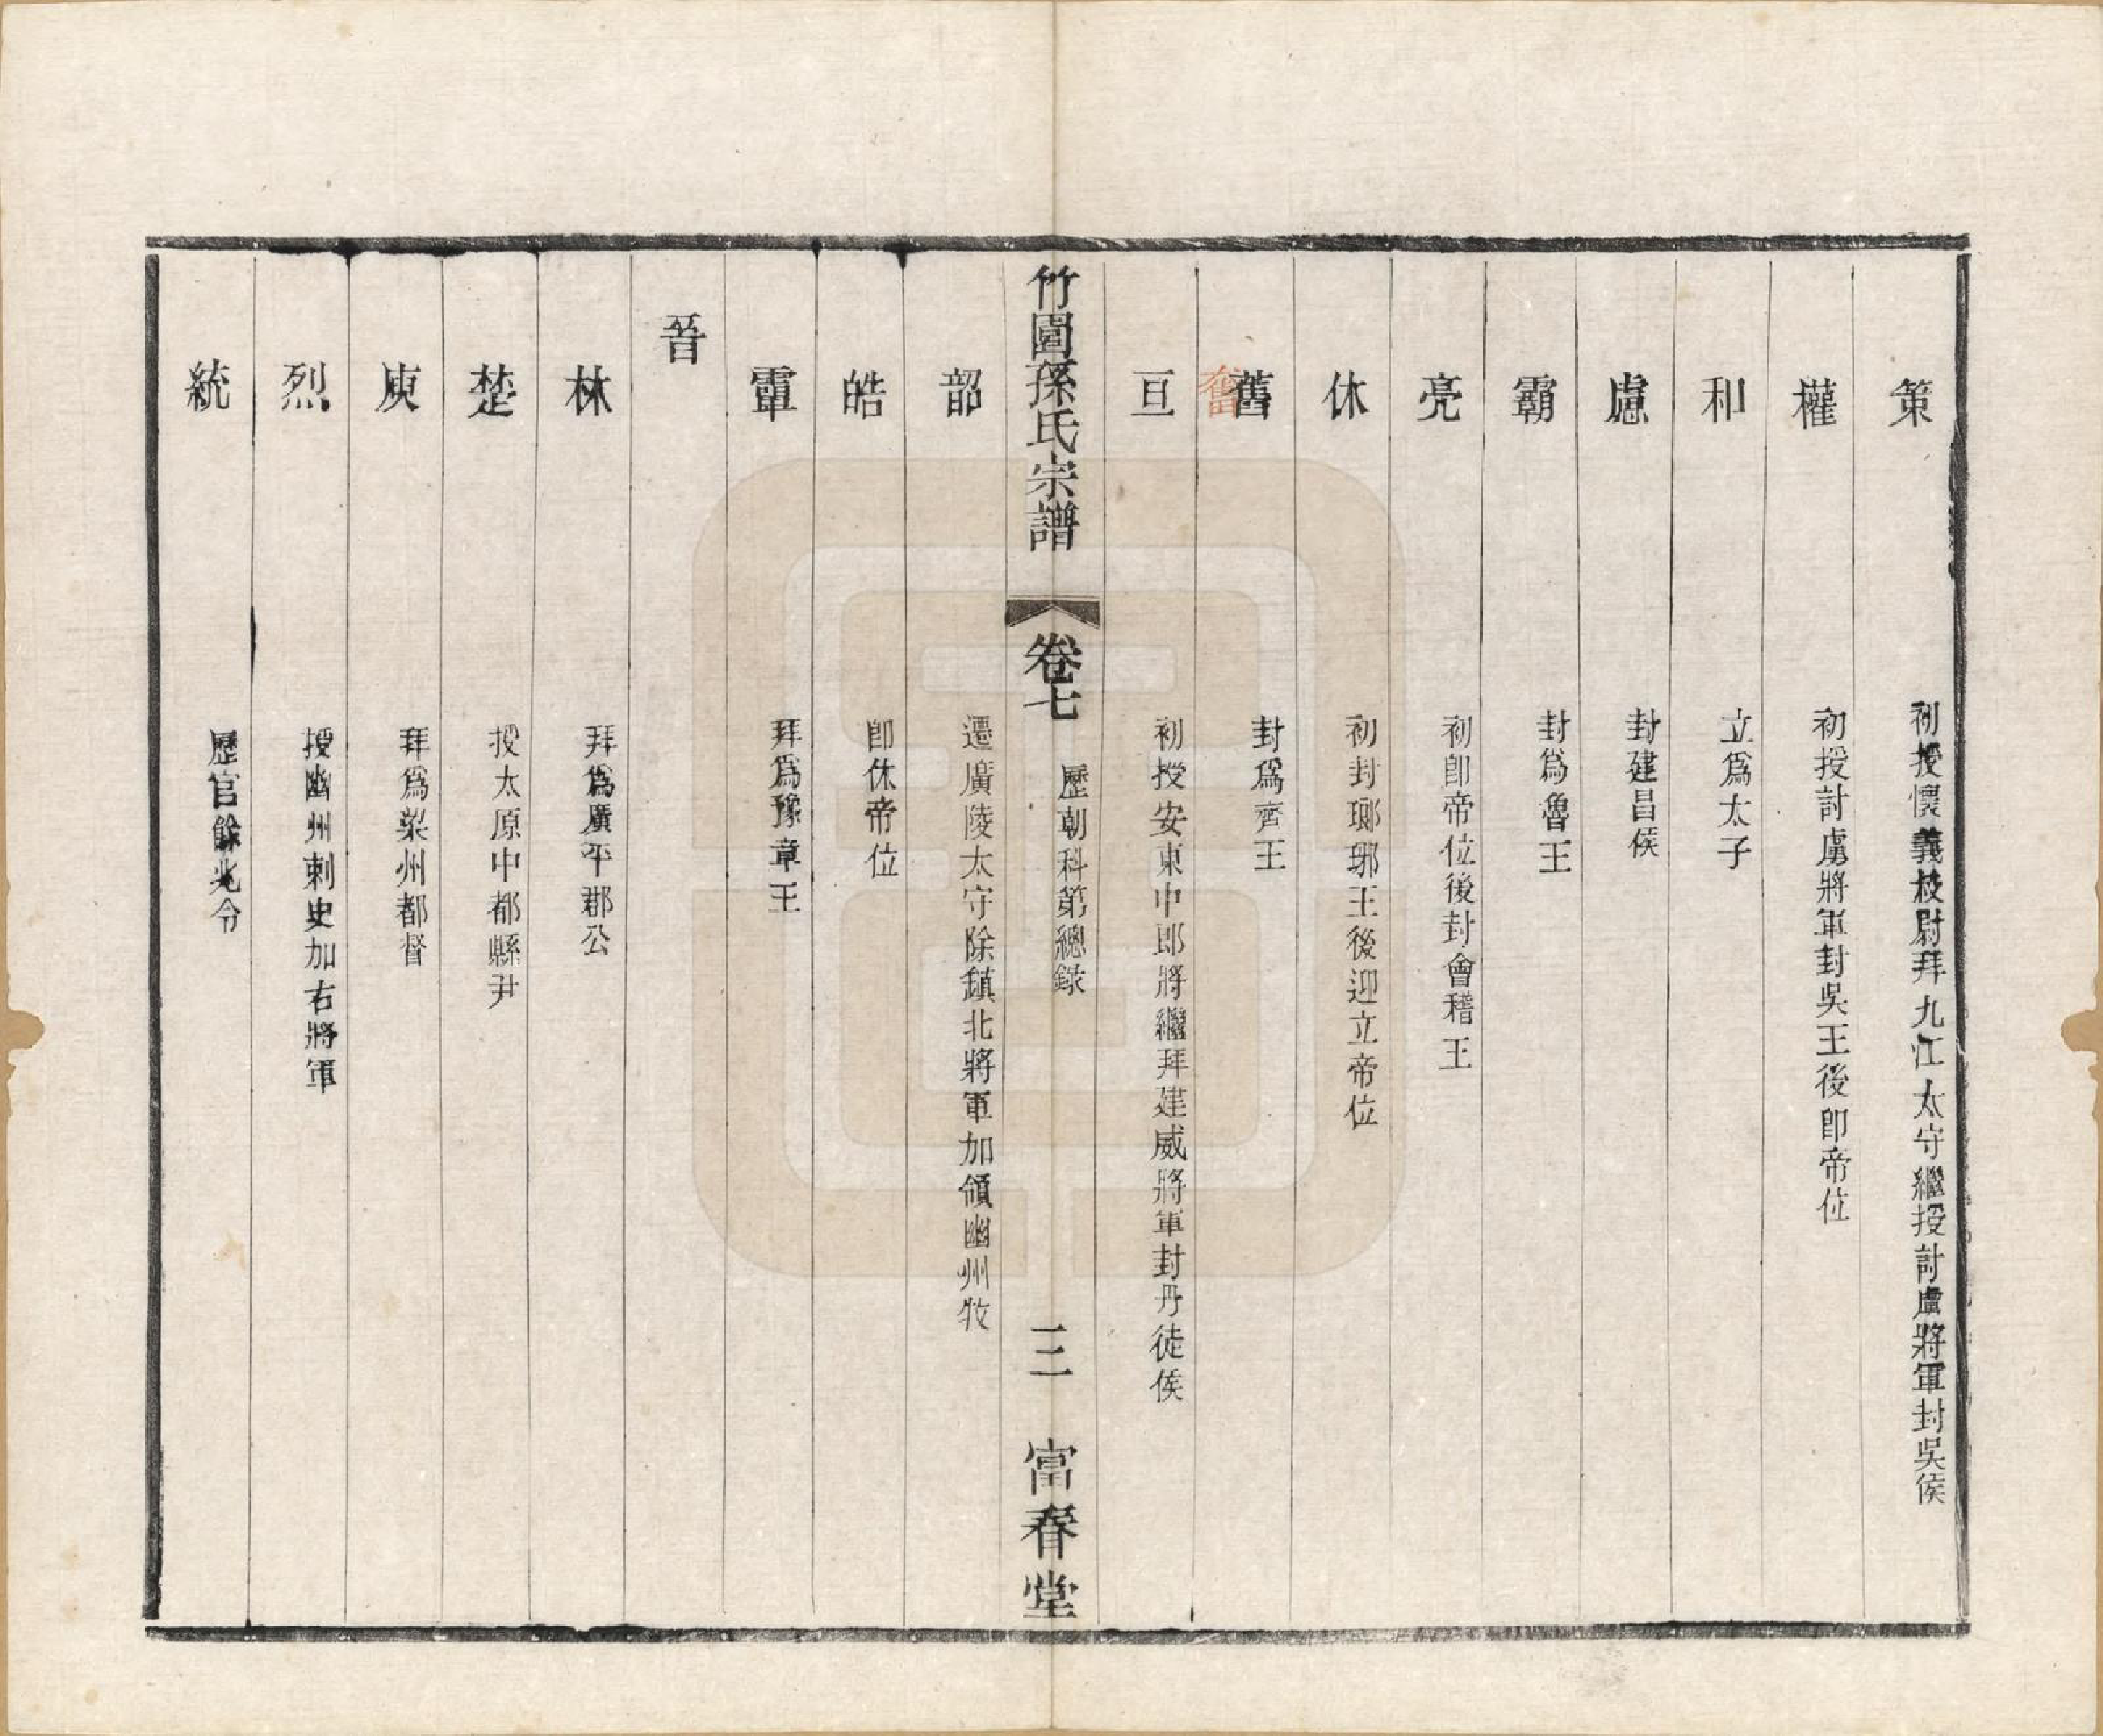 策 初授懷義校尉拜九江太守繼授討虜將軍封吳侯
權 初授討虜將軍封吳王後卽帝位
和 立爲太子
慮 封建昌侯
霸 封爲魯王
亮 初卽帝位後封會稽王
休 初封瑯琊王後迎立帝位
舊 奮 封爲齊王
亘 初授安東中郎將繼拜建威將軍封丹徒侯
竹園孫氏宗譜 卷七 歷朝科第總錄 三 富春堂
韶 遷廣陵太守除鎮北將軍加領幽州牧
皓 卽休帝位
𩅦 拜爲豫章王
晉
林 拜爲廣平郡公
楚 授太原中都縣尹
庾 拜爲梁州都督
烈 授幽州刺史加右將軍
統 歷官餘兆令